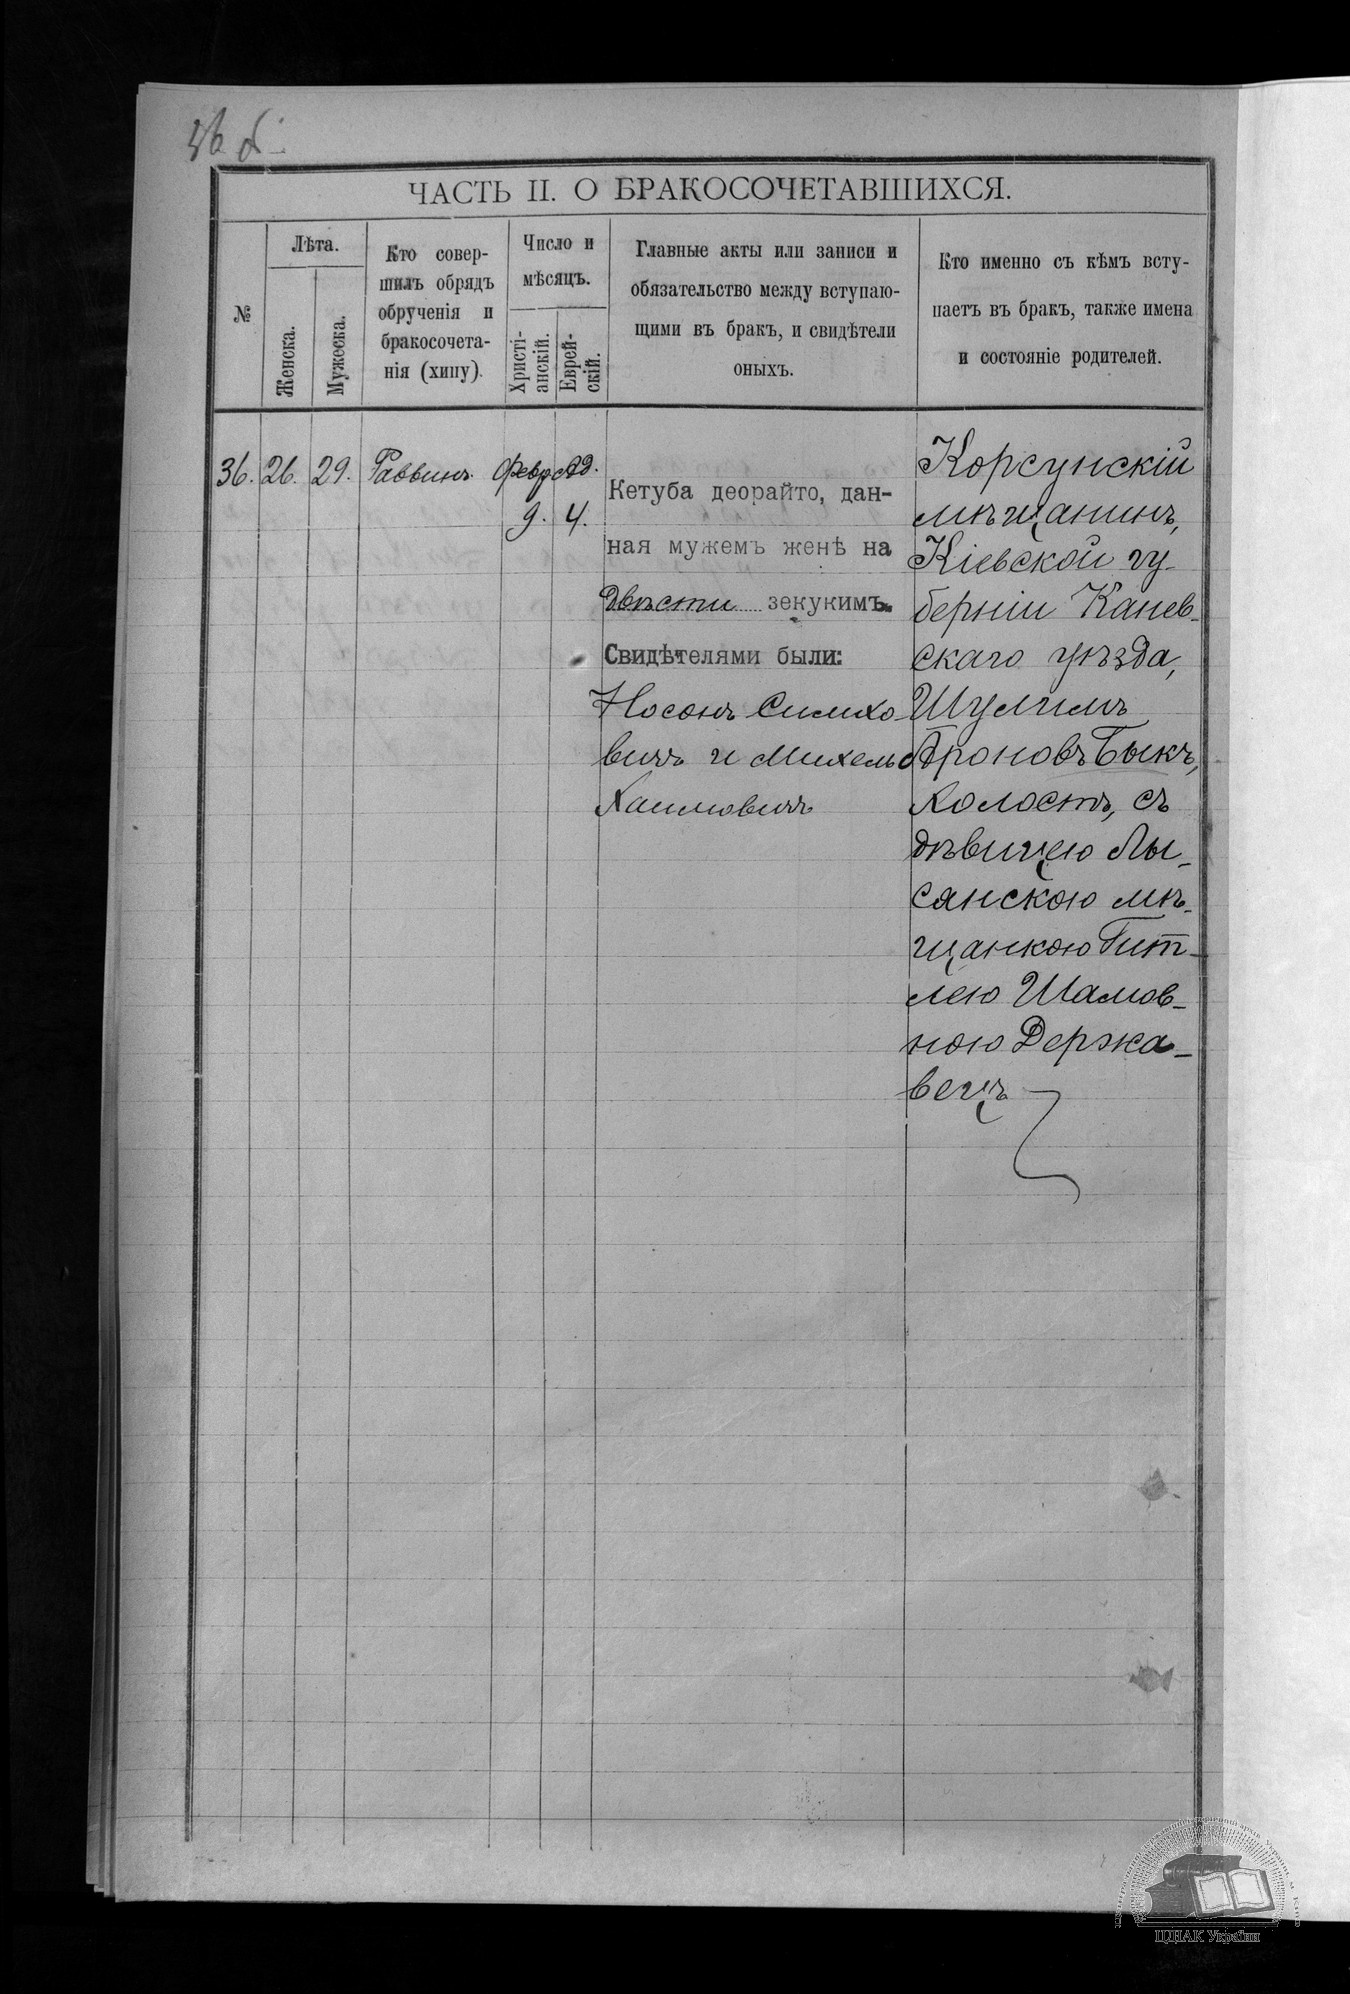 36 об.
ЧАСТЬ II. О БРАКОСОЧЕТАВШИХСЯ.
№
Лѣта.
Женска.
Мужеска.
Кто совер-
шилъ обрядъ
обрученія и
бракосочета-
нія (хипу).
Число и
мѣсяцъ.
Христі-
анскій.
Еврей-
скій.
Главные акты или записи и
обязательство между вступаю-
щими въ бракъ, и свидѣтели
оныхъ.
Кто именно съ кѣмъ всту-
паетъ въ бракъ, также имена
и состояніе родителей.
36. 26. 29. Раввинъ. Февр. Ад.
9. 4.
Кетуба деорайто, дан-
ная мужемъ женѣ на
двѣсти зекукимъ.
Свидѣтелями были:
Носонъ Симхо
вичъ и Михель
Хаимовичъ
Корсунскій
мѣщанинъ,
Кіевской гу-
берніи Канев-
скаго уѣзда,
Шулимъ
Ароновъ Быкъ,
холостъ, съ
дѣвицею Лы-
сянскою мѣ-
щанкою Гит-
лею Шамов-
ною Держа-
вецъ
ЦДІАК України